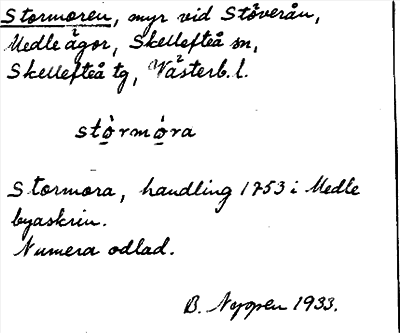 Stormoren, myr vid Stöverån,
Medle ägor, Skellefteå sn,
Skellefteå tg, Västerb. l.
stò̱rmò̱ra
Stormora, handling 1753 i Medle
byaskrin.
Numera odlad.
B. Nyppen 1933.